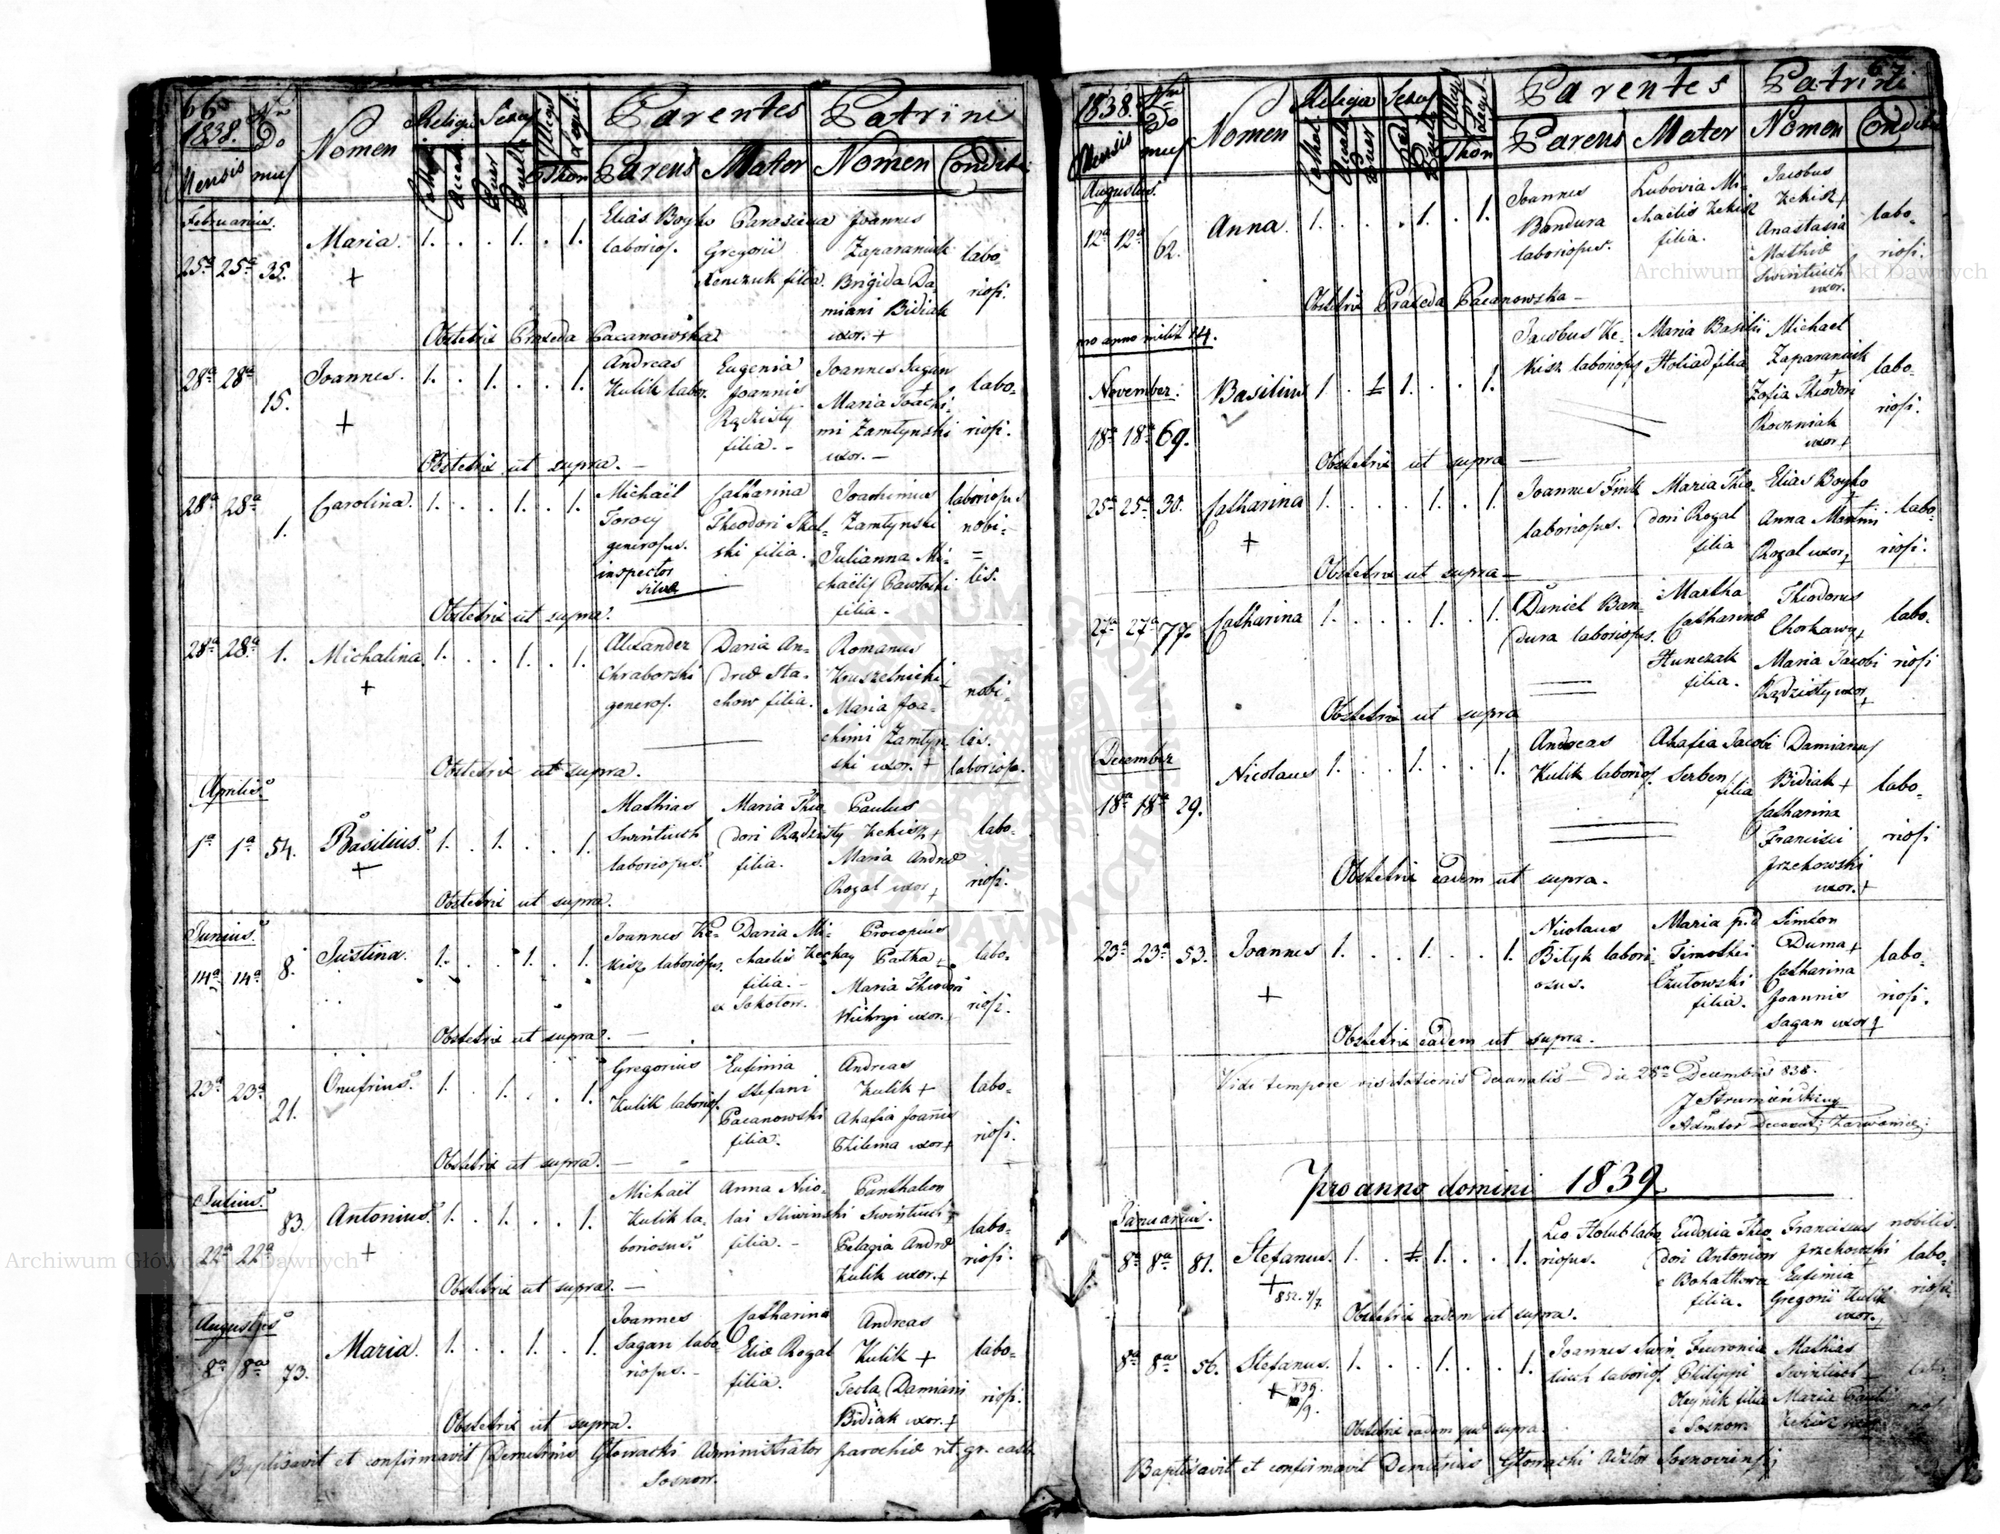 66.
1838.
Mensis
Nrus Domus
Nomen
Religio
Sexus
Thori
Parentes
Patrini
Parens Mater Nomen Condit.
Februarius.
25a 25a 35. Maria. 1. . . 1. . 1.
Elias Boyko laborios.
Parasceua Gregorii Senczuk filia.
Joannes Zaparaniuk
Brigida Damiani Bidiak uxor. +
laboriosi.
Obstetrix Praxeda Pacanowska
28a 28a 15. Joannes. 1. . 1. . . 1.
Andreas Kulik labor.
Eugenia Joannis Rządzisty filia. –
Joannes Sagan +
Maria Joachimi Zamłynski uxor. –
laboriosi.
Obstetrix ut supra. –
28a 28a 1. Carolina. 1. . . 1. . 1.
Michaël Torocy generosus. inspector silvae
Catharina Theodori Skalski filia.
Joachimus Zamłynski
Julianna Michaëlis Pawłoski filia. –
laboriosus nobilis.
Obstetrix ut supra.
28a 28a 1. Michalina. 1. . . 1. . 1.
Alexander Chraborski generos.
Daria Andreae Stachow filia.
Romanus Kruszelnicki
Maria Joachimi Zamłynski uxor. +
nobilis. laborios.
Obstetrix ut supra.
Aprilis.
1a 1a 54. Basilius. 1. . 1. . . 1.
Mathias Swintiuch laboriosus.
Maria Theodori Rządzisty filia.
Paulus Kekisz +
Maria Andreae Rogal uxor +
laboriosi.
Obstetrix ut supra.
Junius.
14a 14a 8. Justina. 1. . . 1. . 1.
Joannes Kekisz laboriosus.
Daria Michaelis filia. – ex Sokołow.
Procopius Patka +
Maria Theodori uxor.
laboriosi.
Obstetrix ut supra. –
23a 23a 21. Onufrius. 1. . 1. . . 1.
Gregorius Kulik laborios.
Eufimia Stefani Pacanowski filia.
Andreas Kulik +
Ahafia Joannis Philema uxor +
laboriosi.
Obstetrix ut supra. –
Julius.
22a 22a 83. Antonius. 1. . 1. . . 1.
Michaël Kulik laboriosus.
Anna Nicolai Sliwinski filia. –
Panthalion Swintiuch
Pelagia Andreae Kulik uxor. +
laboriosi.
Obstetrix ut supra. –
Augustus
8a 8a 73. Maria. 1. . . 1. . 1.
Joannes Sagan laboriosus. –
Catharina Eliae Rogal filia.
Andreas Kulik +
Tecla Damiani Bidiak uxor. +
laboriosi.
Obstetrix ut supra.
Baptisavit et confirmavit Demetrius Głowacki Administrator parochiae rit. gr. cath.
Sosnow.
67.
1838.
Mensis
Nrus Domus
Nomen
Religio
Sexus
Thori
Parentes
Patrini
Parens Mater Nomen Conditio
Augustus.
12a 12a 62. Anna. 1. . . . 1. . 1.
Joannes Bandura laboriosus.
Lubovia Michaëlis Kekisz filia.
Jacobus Kekisz +
Anastasia Mathiae Swintiuch uxor.
laboriosi.
Obstetrix Praxeda Pacanowska –
pro anno milit. 14.
November.
18a 18a 69. Basilius 1 . 1. . . 1.
Jacobus Kekisz laboriosus
Maria Basilii Holiad filia
Michael Zaparaniuk
Zofia Theodori Rowniak uxor +
laboriosi.
Obstetrix ut supra –
25a 25a 30. Catharina 1. . . . 1. . 1.
Joannes Fmik laboriosus.
Maria Theodori Rogal filia
Elias Boyko +
Anna Martini Rogal uxor +
laboriosi.
Obstetrix ut supra –
27a 27a 77. Catharina 1. . . . 1. . 1.
Daniel Bandura laboriosus.
Martha Catharinae Hunczak filia.
Theodorus Chorkawy +
Maria Jacobi Rządzisty uxor +
laboriosi
Obstetrix ut supra
December
18a 18a 29. Nicolaus 1. . . 1. . . 1.
Andreas Kulik laborios.
Ahafia Jacobi Serben filia
Damianus Bidiak +
Catharina Francisci Jrzekowski uxor. +
laboriosi
Obstetrix eadem ut supra.
23a 23a 53. Joannes 1. . . 1. . . 1.
Nicolaus Bityk laboriosus.
Maria p.d Timothei Czutowski filia.
Simeon Duma +
Catharina Joannis Sagan uxor +
laboriosi.
Obstetrix eadem ut supra.
Vidi tempore visitationis decanalis – die 28a Decembris 838.
J Strumieński
Admtor Decanat: Zarwanic:
pro anno domini 1839.
Januarius.
8a 8a 81. Stefanus. 1. . 1. . . 1.
+ 852. 4/7.
Leo Holub laboriosus.
Eudoxia Theodori Antoniow e Bohatkowa filia.
Franciscus Jrzekowski +
Eufimia Gregorii Kulik uxor. +
nobilis laboriosi.
Obstetrix eadem ut supra.
8a 8a 56. Stefanus. 1. . . 1. . . 1.
+ 839.
Joannes Swintiuch laborios.
Fevronia Philippi Oleynik filia e Sosnow
Mathias Swintiuch –
Maria Pauli Kekisz uxor
Obstetrix eadem quae supra.
Baptisavit et confirmavit Demetrius Głowacki Adtor Sosnovinsis
Archiwum Główne Akt Dawnych
Archiwum Główne Akt Dawnych
ARCHIWUM GŁÓWNE AKT DAWNYCH